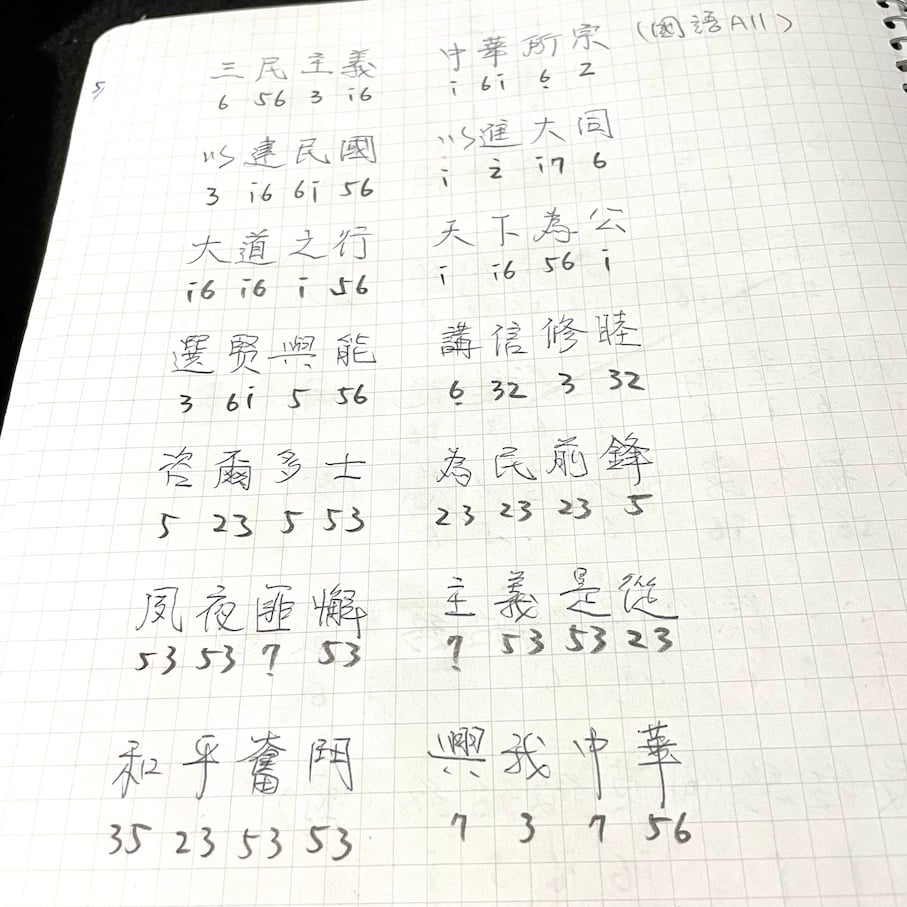 三民主義 中華所宗 (國語All)
6 56 3 i6 i 6i 6̣ 2
以建民國 以進大同
3 i6 6i 56 i 2̇ i7 6
大道之行 天下為公
i6 i6 i 56 i i6 56 i
選賢與能 講信修睦
3 6i 5 56 6̣ 32 3 32
咨爾多士 為民前鋒
5 23 5 53 23 23 23 5
夙夜匪懈 主義是從
53 53 7̣ 53 7̣ 53 53 23
和平奮鬥 興我中華
35 23 53 53 7 3 7 56